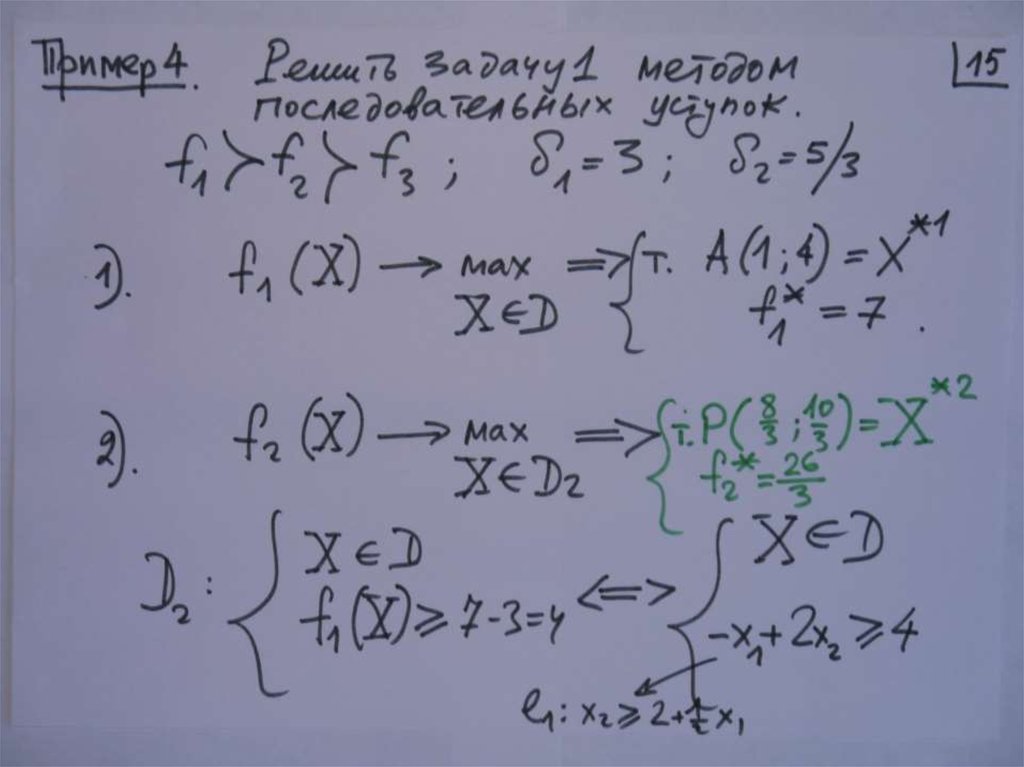 Пример 4. Решить задачу 1 методом 15
последовательных уступок.
f₁ ≻ f₂ ≻ f₃ ; δ₁ = 3 ; δ₂ = 5/3
1). f₁(X) → max ⇒ { т. A(1;4) = X*¹
X∈D f₁* = 7 .
2). f₂(X) → max ⇒ { т. P(8/3 ; 10/3) = X*²
X∈D₂ f₂* = 26/3
D₂ : { X∈D ⇔ { X∈D
f₁(X) ⩾ 7-3=4 -x₁+2x₂ ⩾ 4
l₁: x₂ ⩾ 2+½x₁